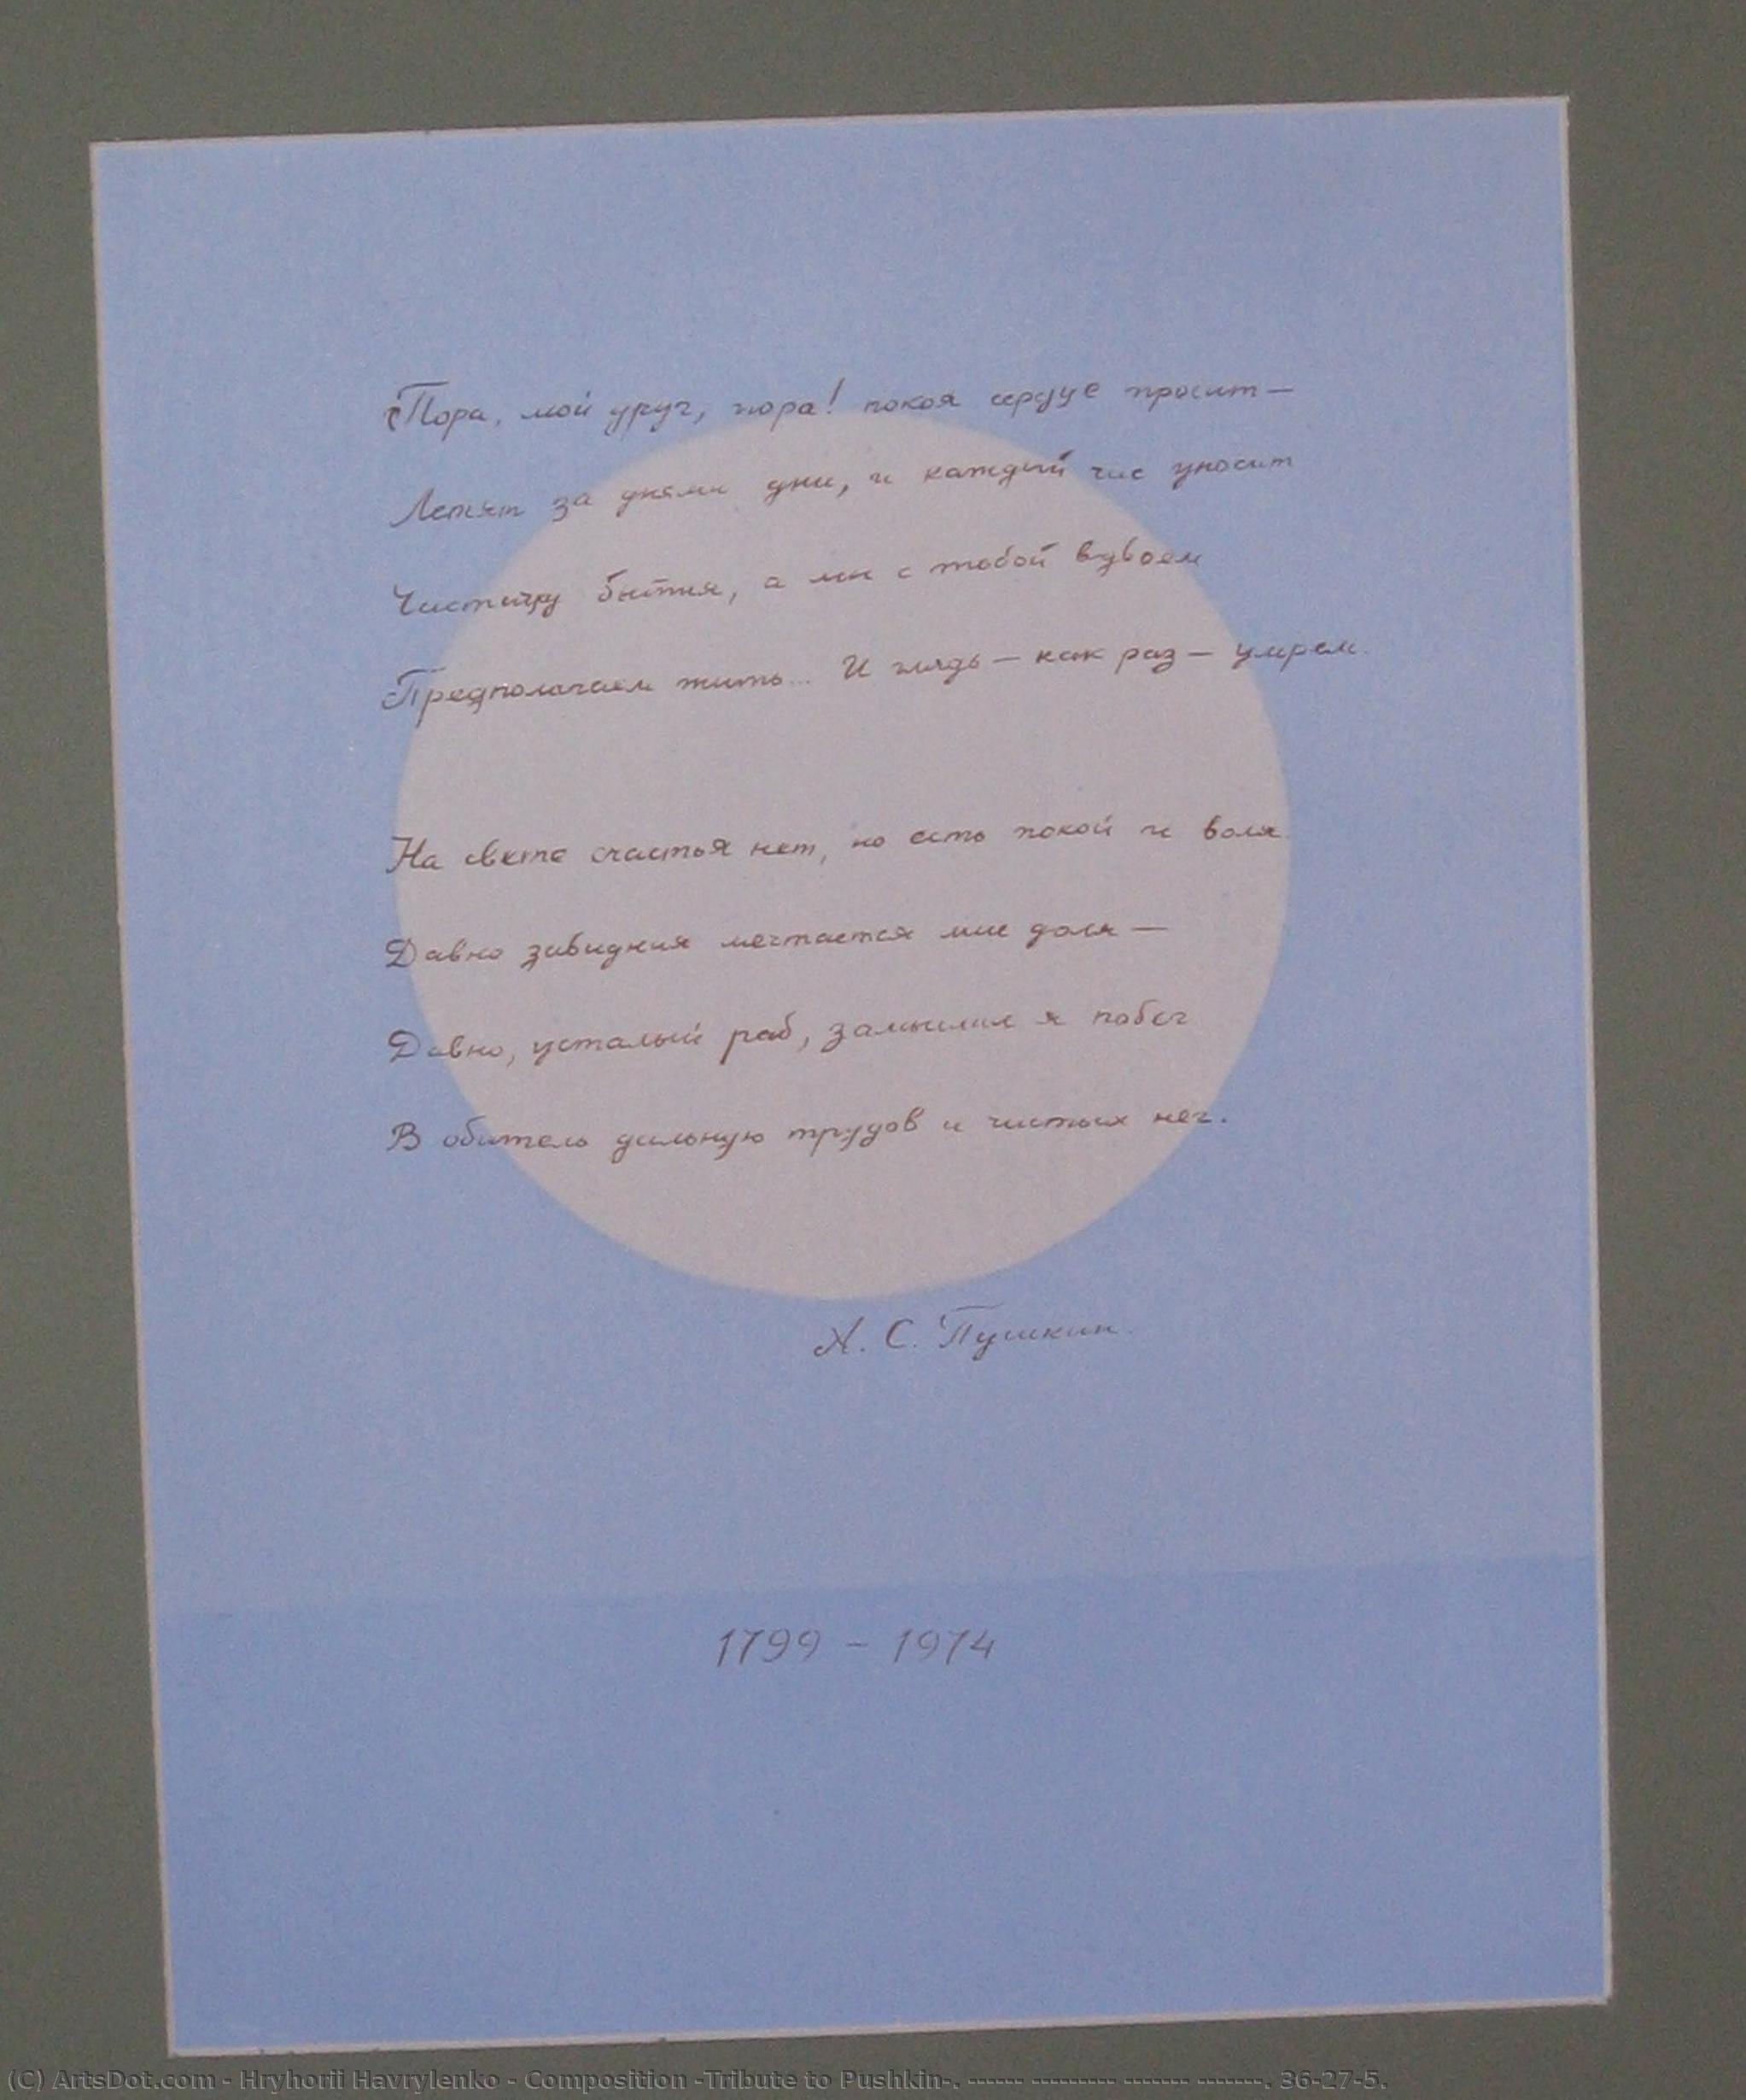 Пора, мой друг, пора! покоя сердце просит —
Летят за днями дни, и каждый час уносит
Частичку бытия, а мы с тобой вдвоем
Предполагаем жить... И глядь — как раз — умрем.
На свете счастья нет, но есть покой и воля
Давно завидная мечтается мне доля —
Давно, усталый раб, замыслил я побег
В обитель дальную трудов и чистых нег.
А. С. Пушкин.
1799 – 1974
(C) ArtsDot.com - Hryhorii Havrylenko - Composition -Tribute to Pushkin-. ------ ---------- ------- -------. 36-27-5.